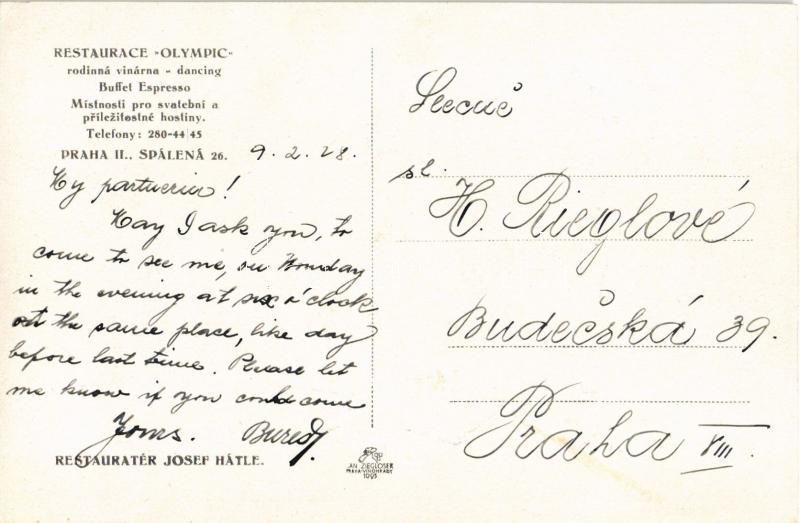 RESTAURACE "OLYMPIC"
rodinná vinárna - dancing
Buffet Espresso
Místnosti pro svatební a
příležitostné hostiny.
Telefony: 280-44/45
PRAHA II., SPÁLENÁ 26.
9. 2. 28.
My partnerin!
May I ask you, to
come to see me, on Monday
in the evening at six o'clock
at the same place, like day
before last time. Please let
me know if you could come
Yours.
RESTAURATÉR JOSEF HÁTLE.
JAN ZIEGLOSER
PRAHA-VINOHRADY
1095
Slečně
sl.
H. Rieglové
Budečská 39.
Praha VIII.